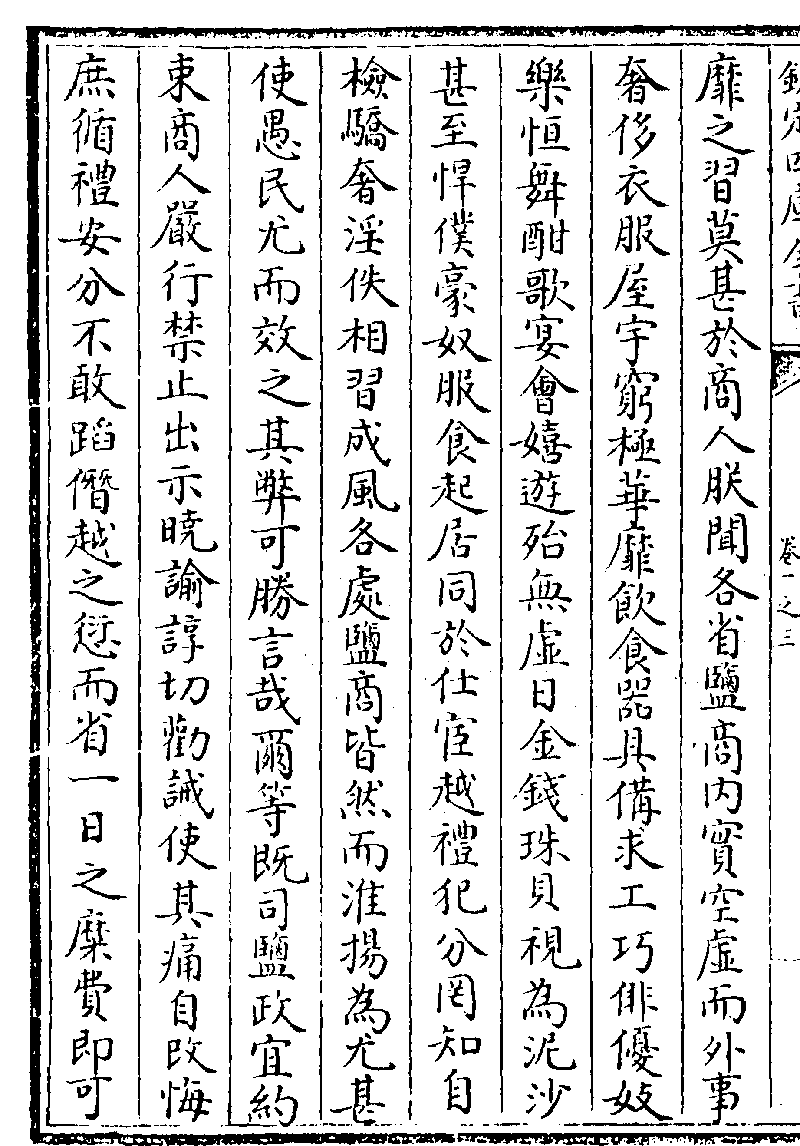 欽定四庫全書
卷一之三
靡之習莫甚於商人朕聞各省鹽商内實空虚而外事
奢侈衣服屋宇窮極華靡飲食器具備求工巧俳優妓
樂恒舞酣歌宴會嬉遊殆無虚日金錢珠貝視為泥沙
甚至悍僕豪奴服食起居同於仕宦越禮犯分罔知自
檢驕奢淫佚相習成風各處鹽商皆然而淮揚為尤甚
使愚民尤而效之其弊可勝言哉爾等既司鹽政宜約
束商人嚴行禁止出示曉諭諄切勸誡使其痛自改悔
庶循禮安分不敢蹈僭越之愆而省一日之糜費即可